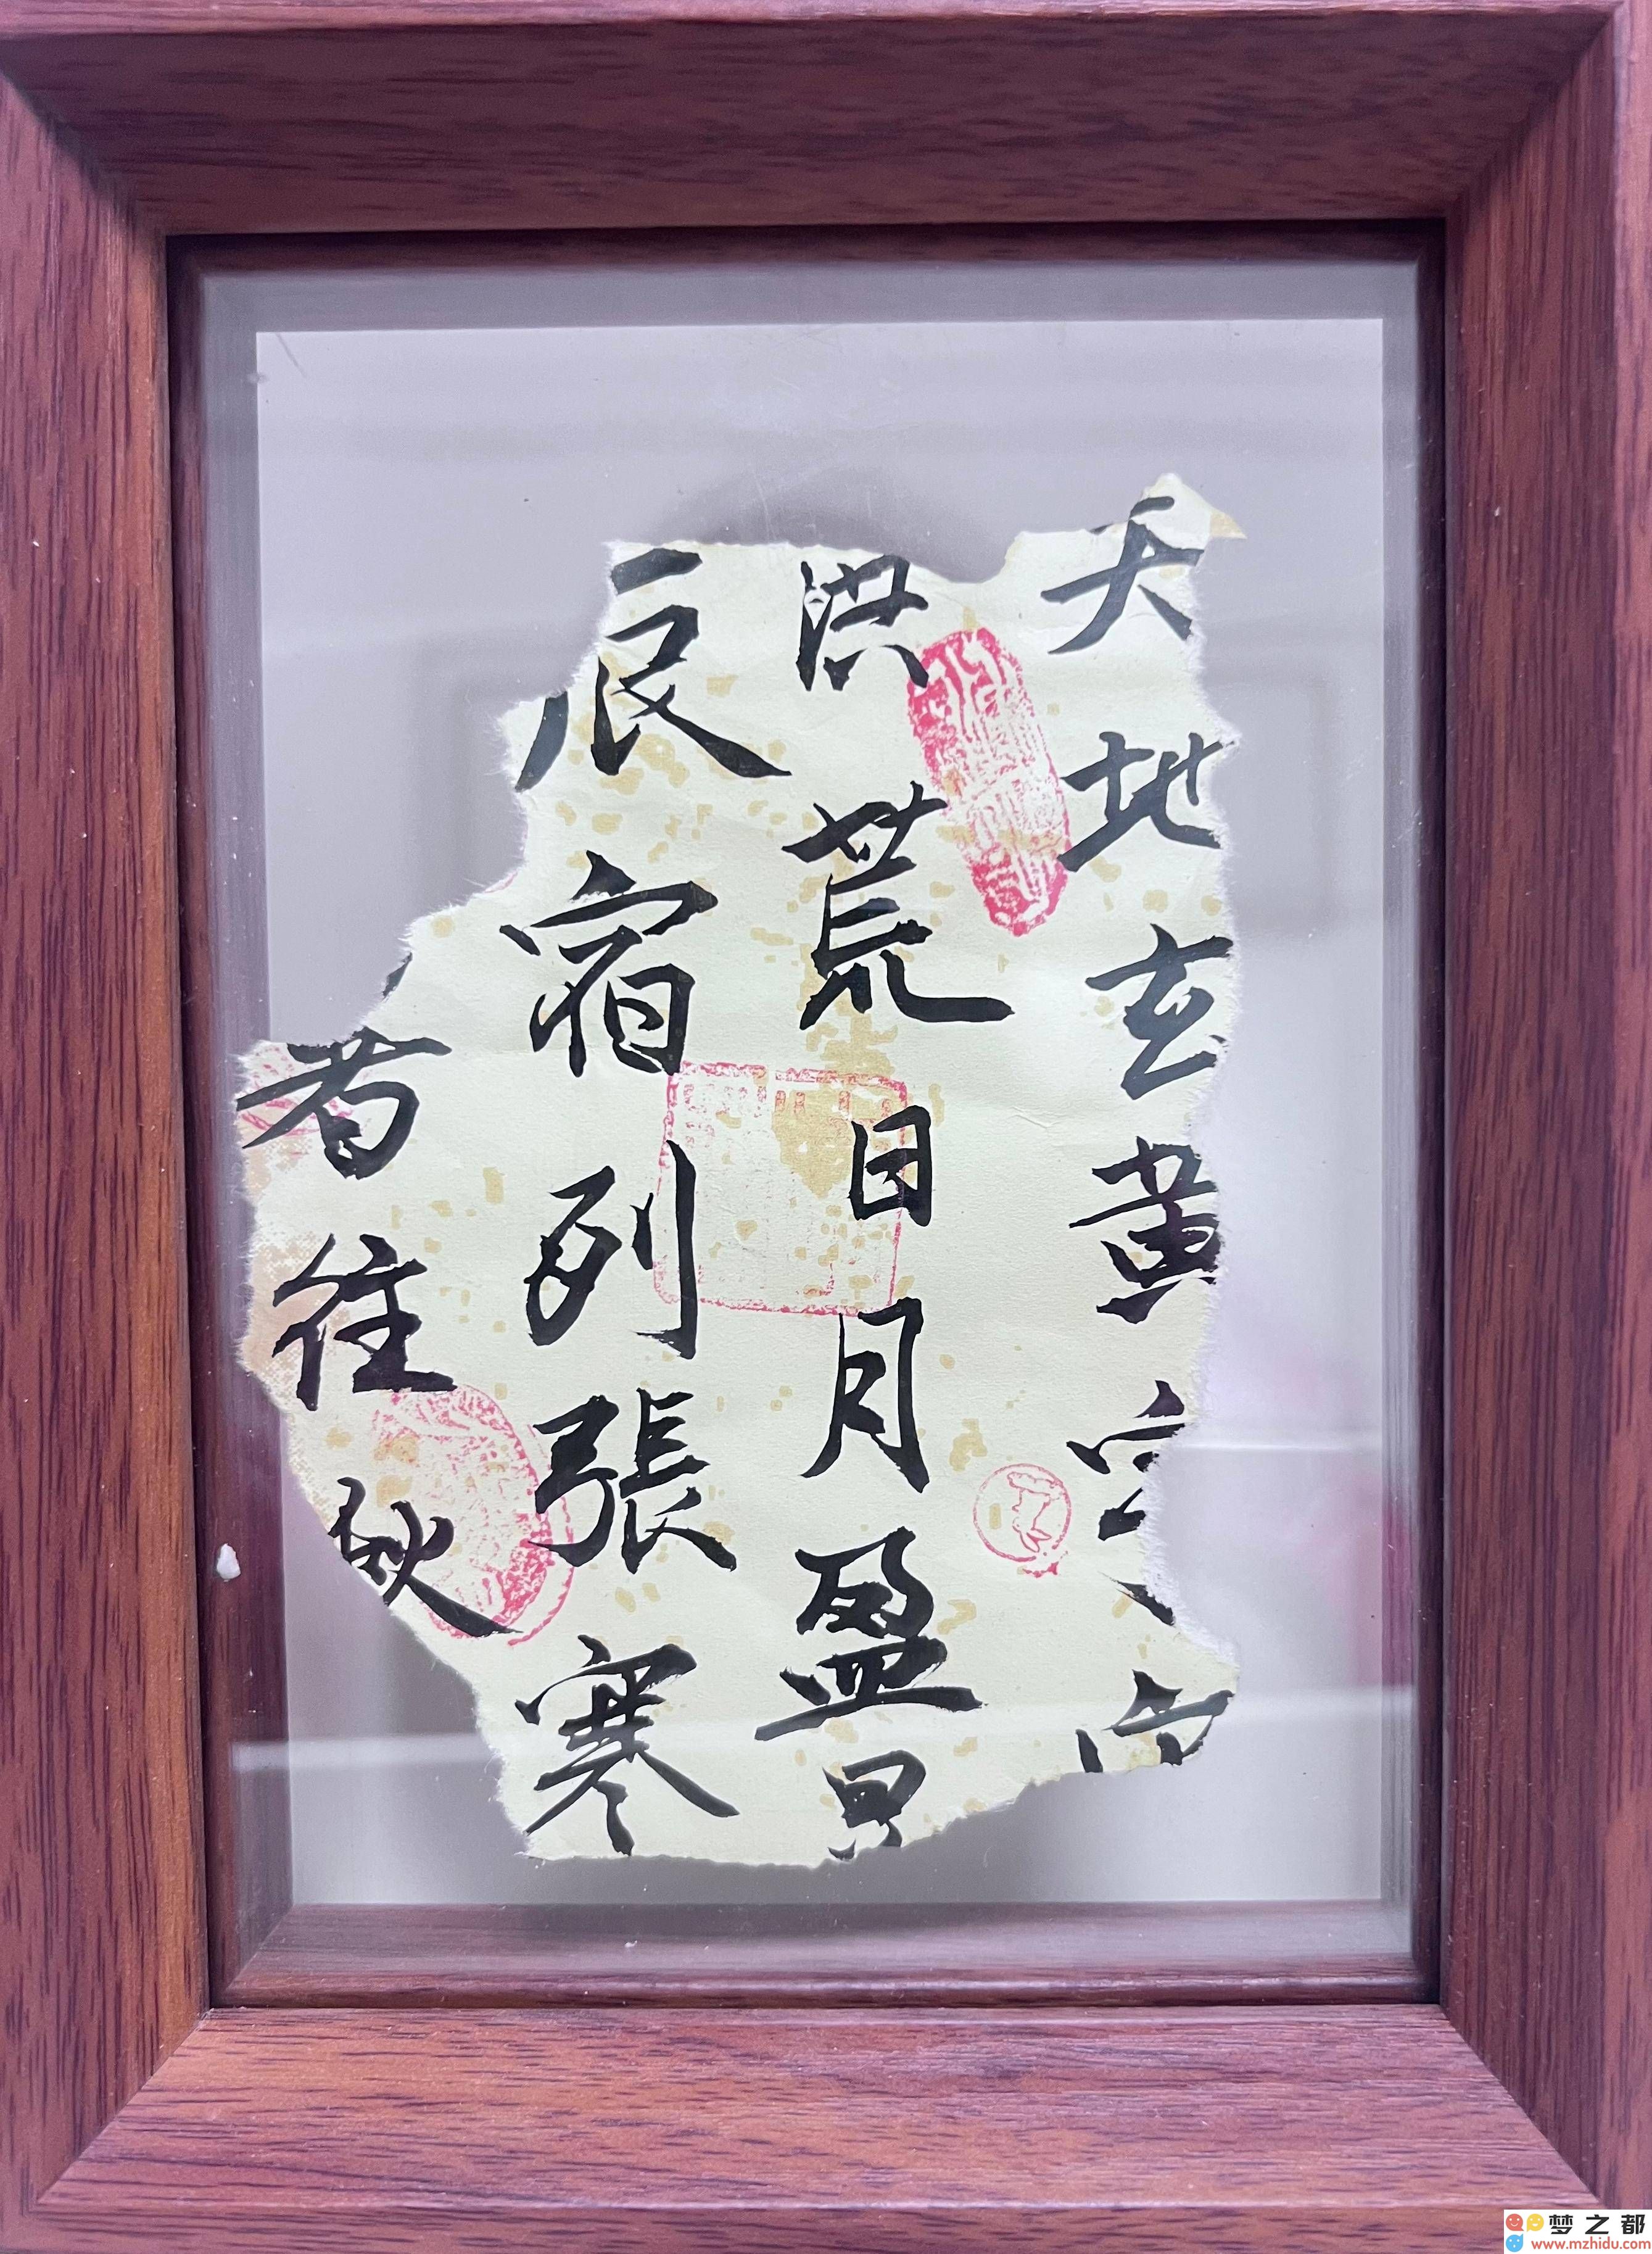 天地玄黄宇宙
洪荒日月盈昃
辰宿列張寒
暑往秋
梦之都
www.mzhidu.com